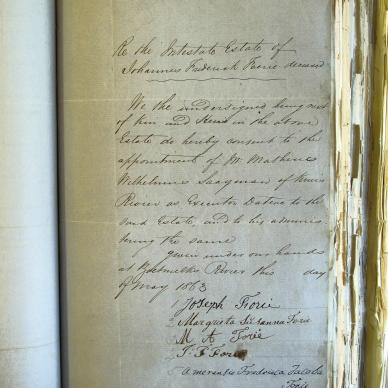 Re the Intestate Estate of
Johannes Frederick Fourie deceased
We the undersigned being next
of Kin and Heirs in the above
Estate do hereby consent to the
appointment of Mr Mathinus
Wilhelmus Saayman of
Rivier as Executor Dative to the
said Estate, and to his adminis-
tering the same
given under our hands
at Rivier this day
of May 1863
Joseph Forie
Margreta Johanna Forie
M A Forie
J F Forie
Frederica Jacoba
Forie